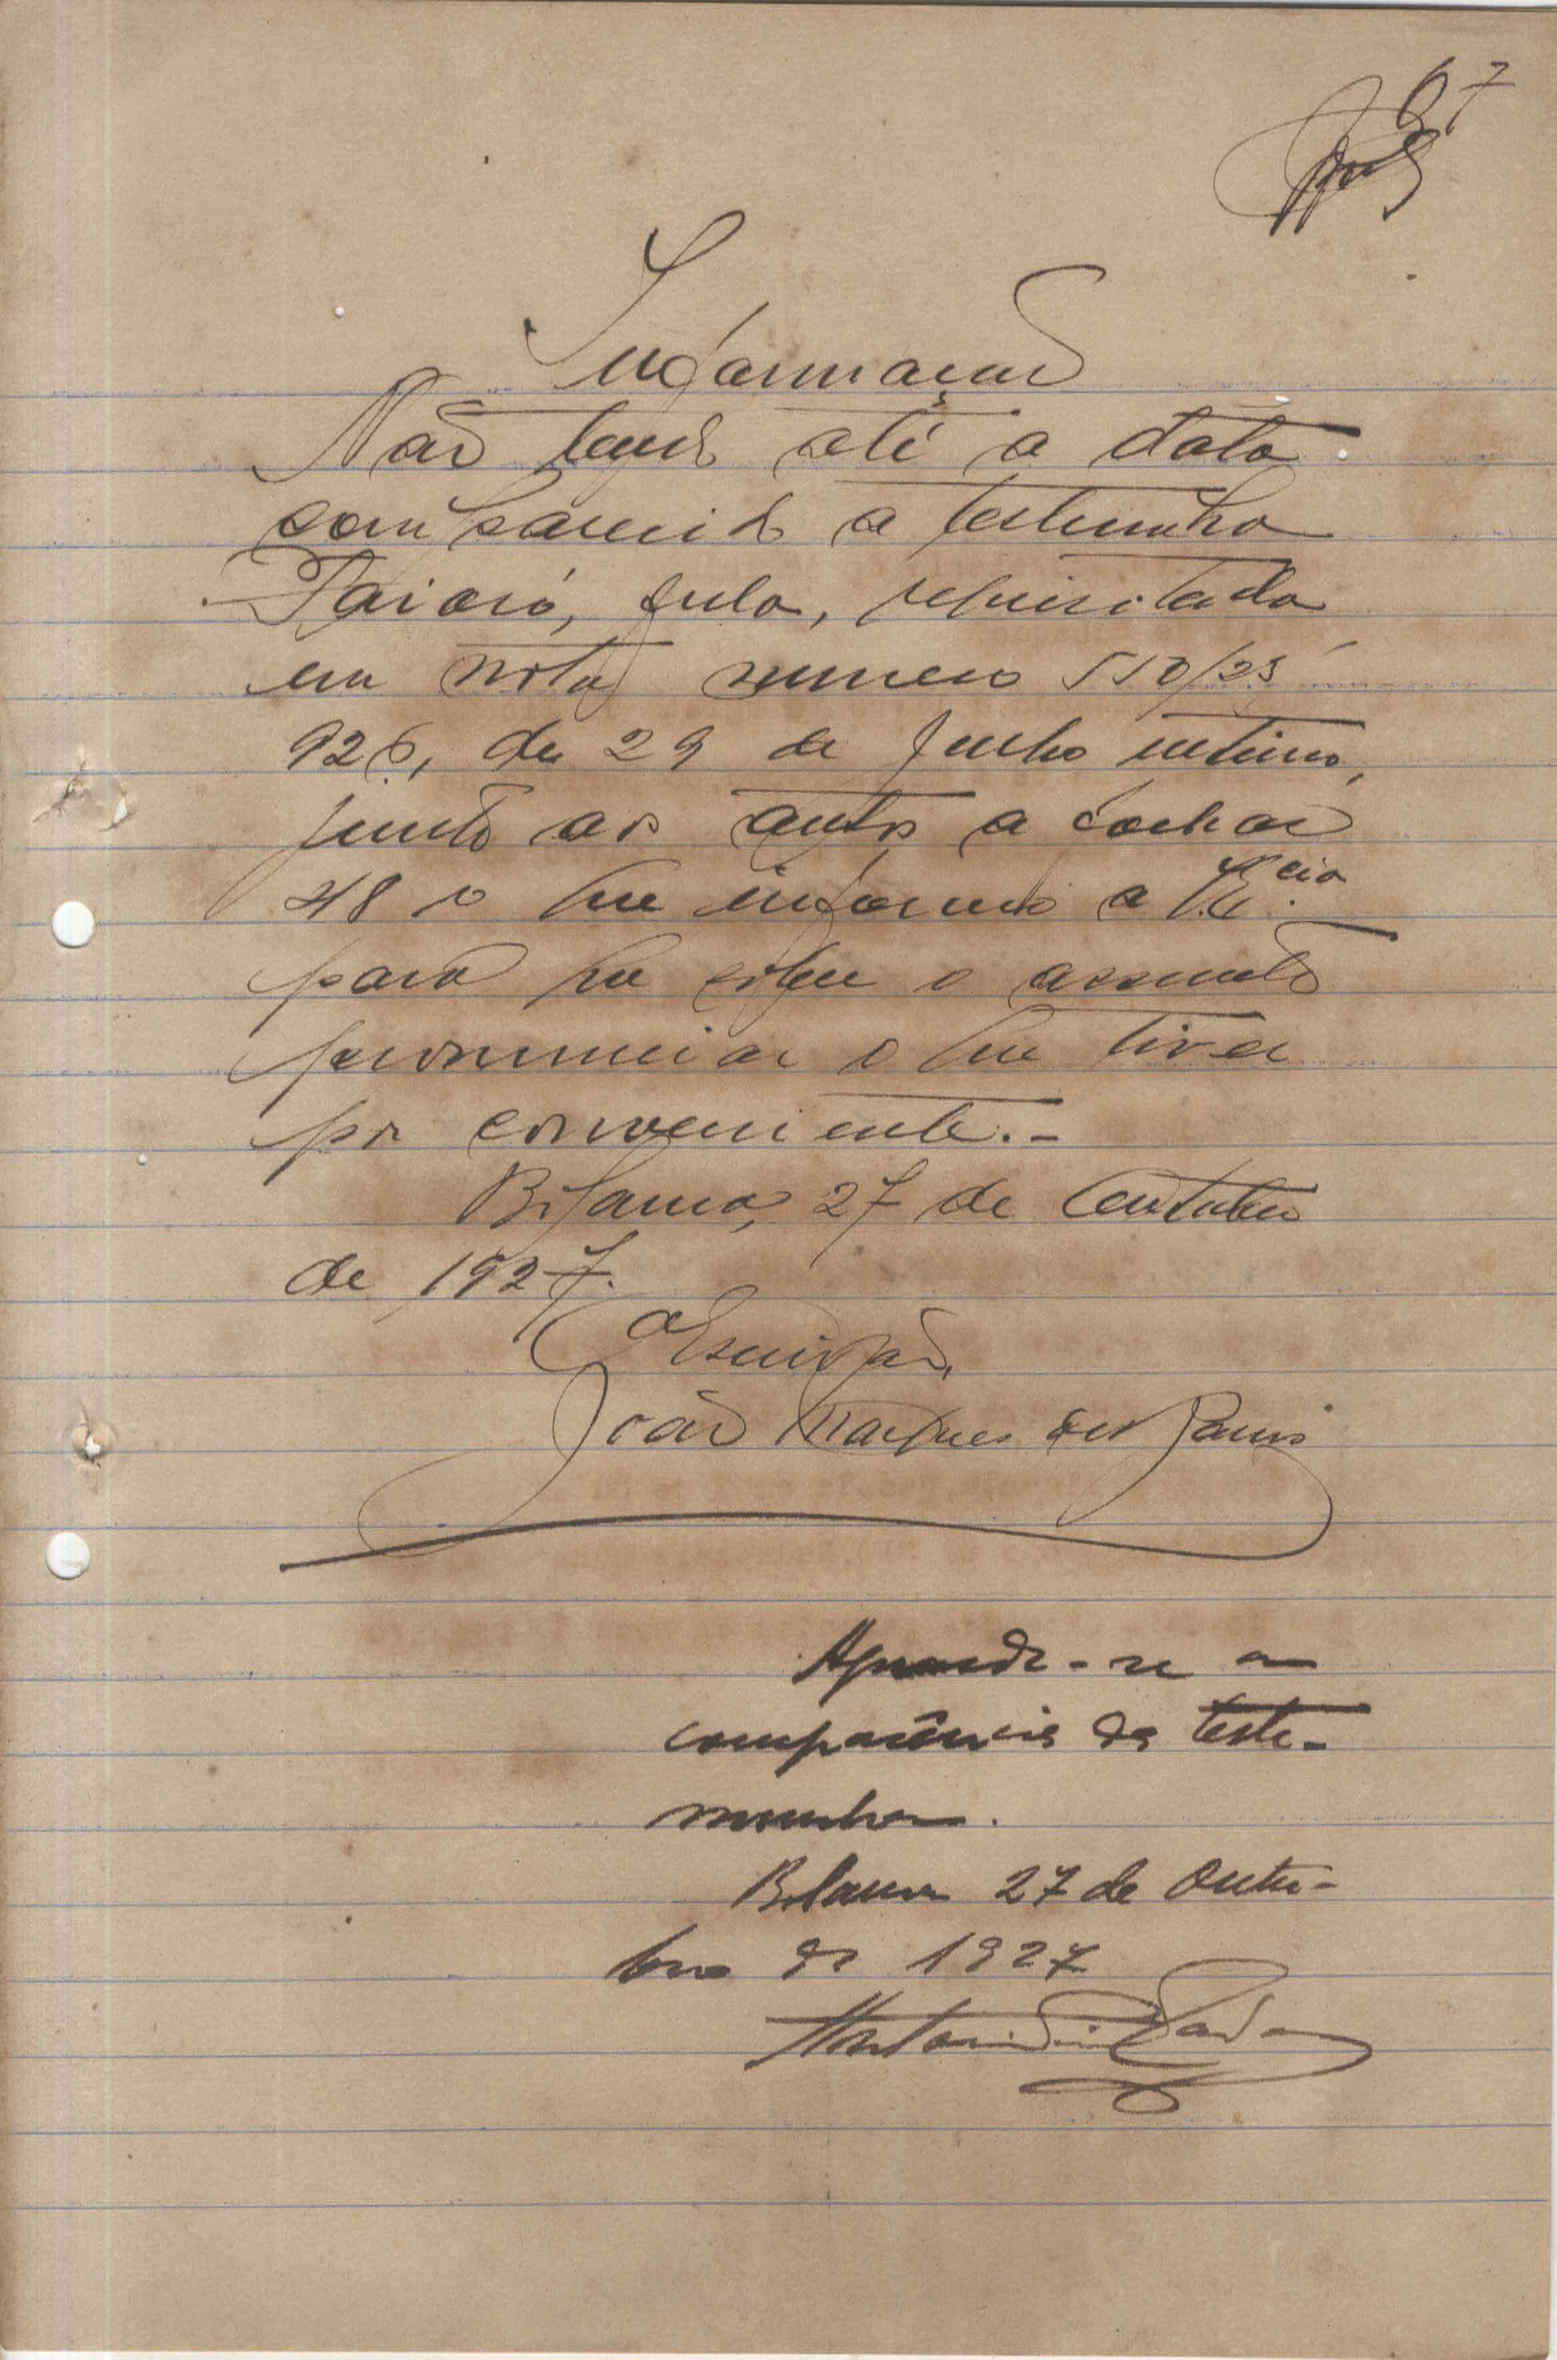 67
Informação
Não tendo até a data
comparecido a testemunha
fula, requisitada
em nota numero 510/25
926, de 29 de Junho ultimo,
junto aos autos a folhas
48 o que informo a V. Ex.cia
para que sobre o assunto
pronunciar o que tiver
por conveniente.-
Bolama, 27 de Outubro
de 1927.
O Escrivão,
João Marques dos
Aguarde-se a
comparência da teste-
munha.
Bolama 27 de Outu-
bro de 1927